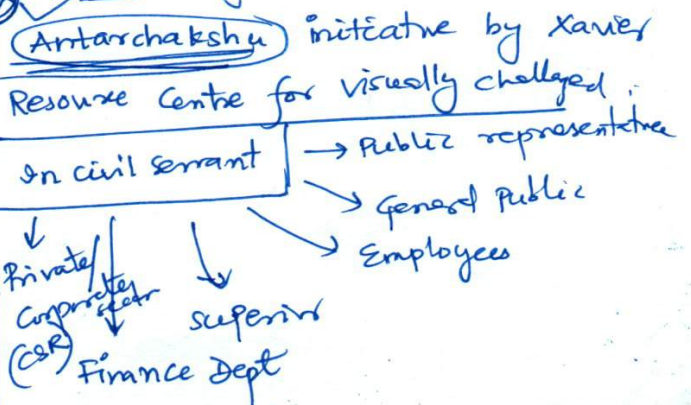 Antarchakshu initiative by Xavier
Resource Centre for visually challeged.
In civil servant → Public representative
→ General Public
→ Employees
Private/
Corporate sector
(CSR)
Finance Dept
superior